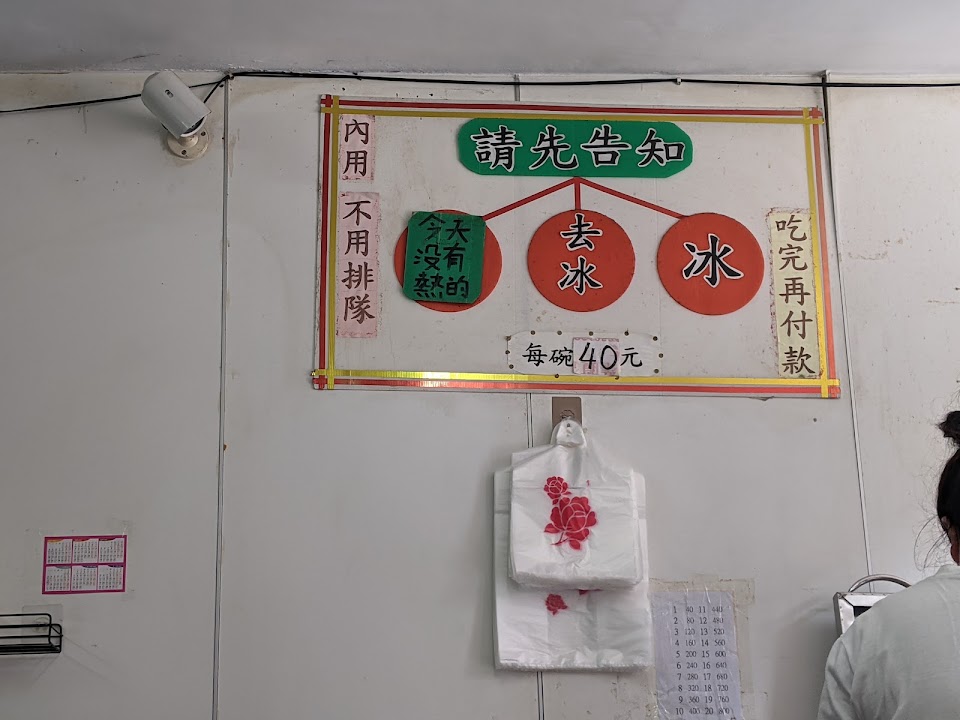 請先告知
內用
不用排隊
今天
沒有
熱的
去
冰
冰
吃完再付款
每碗40元
1 40 11 440
2 80 12 480
3 120 13 520
4 160 14 560
5 200 15 600
6 240 16 640
7 280 17 640
8 320 18 720
9 360 19 760
10 400 20 800